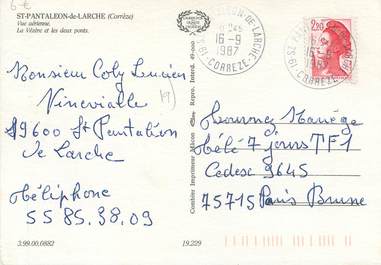 6€
ST-PANTALEON-de-LARCHE (Corrèze)
Vue aérienne.
La Vézère et les deux ponts.
Monsieur Coly Lucien
Vinevialle
19
19600 St Pantaléon
de Larche
Téléphone
55 85.38.09
3.99.00.0882
19.229
Combier Imprimeur Mâcon
Repro. Interd. 49-000
ST PANTALEON-DE-LARCHE
16-9
1987
19 CORREZE
2,20
Tournez Manège
Télé 7 jours TF1
Cedesc 3645
75715 Paris Brune